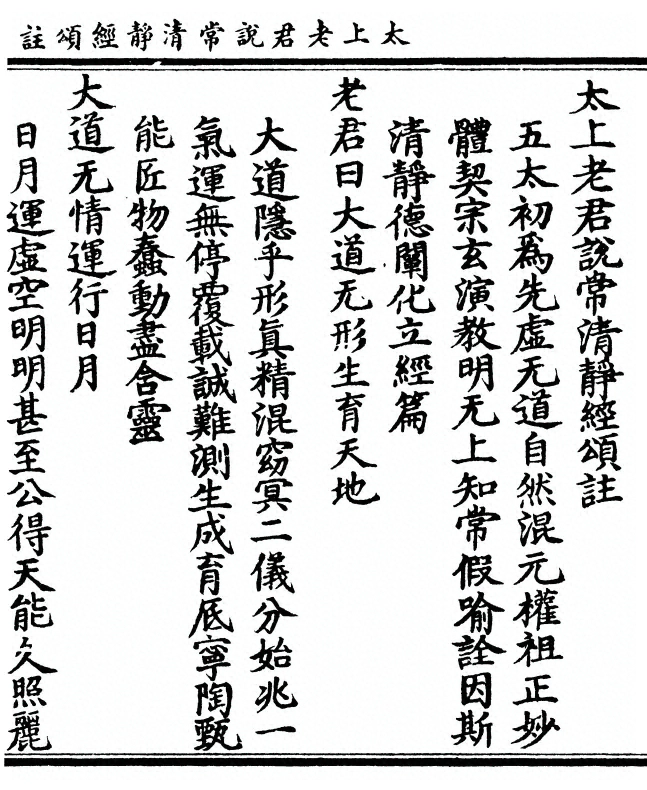 太上老君說常清靜經頌註
太上老君說常清靜經頌註
五太初爲先虛无道自然混元權祖正妙
體契宗玄演教明无上知常假喻詮因斯
清靜德闡化立經篇
老君曰大道无形生育天地
大道隱乎形眞精混窈冥二儀分始兆一
氣運無停覆載誠難測生成育厎寧陶甄
能匠物蠢動盡含靈
大道无情運行日月
日月運虛空明明甚至公得天能久照麗